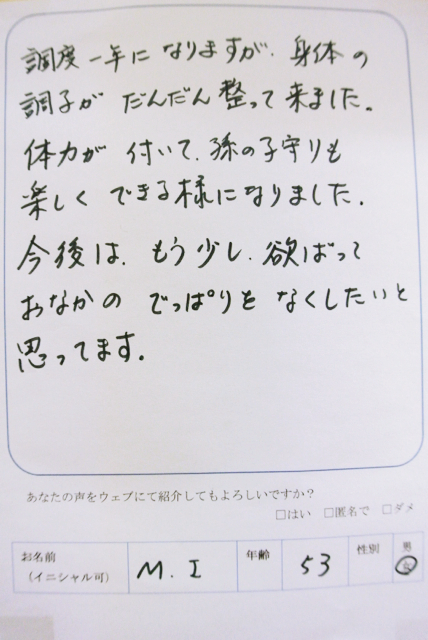 調度一年になりますが、身体の
調子が だんだん整って来ました。
体力が 付いて、孫の子守りも
楽しく できる様になりました。
今後は、もう少し、欲ばって
おなかの でっぱりを なくしたいと
思ってます。
あなたの声をウェブにて紹介してもよろしいですか？
□はい □匿名で □ダメ
お名前
（イニシャル可） M.I 年齢 53 性別 男
女